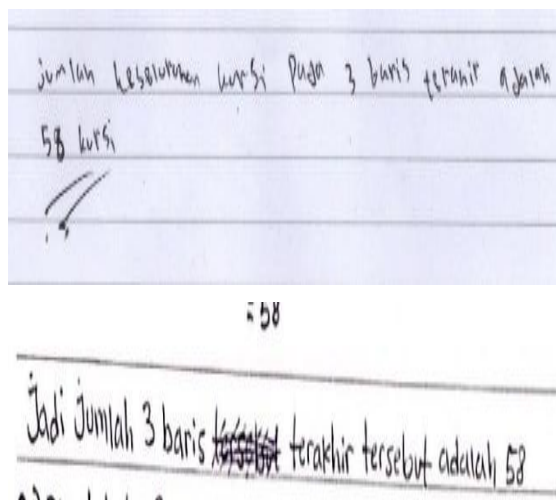 jumlah keseluruhan kursi pada 3 baris terahir adalah
58 kursi
= 58
Jadi jumlah 3 baris terakhir tersebut adalah 58